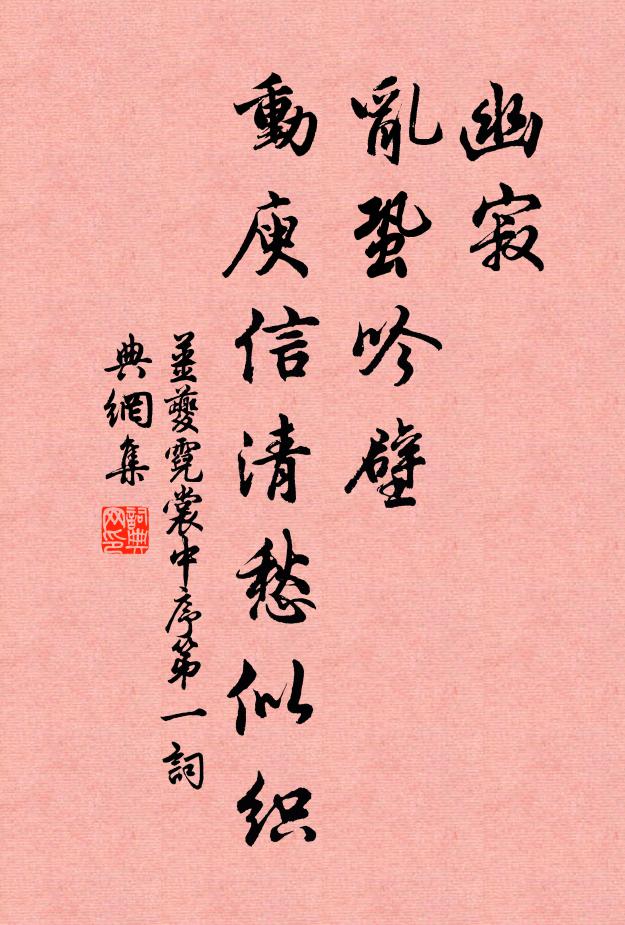 幽寂
亂蛩吟壁
動庾信清愁似織
姜夔霓裳中序第一詞
典網集
詞典網印